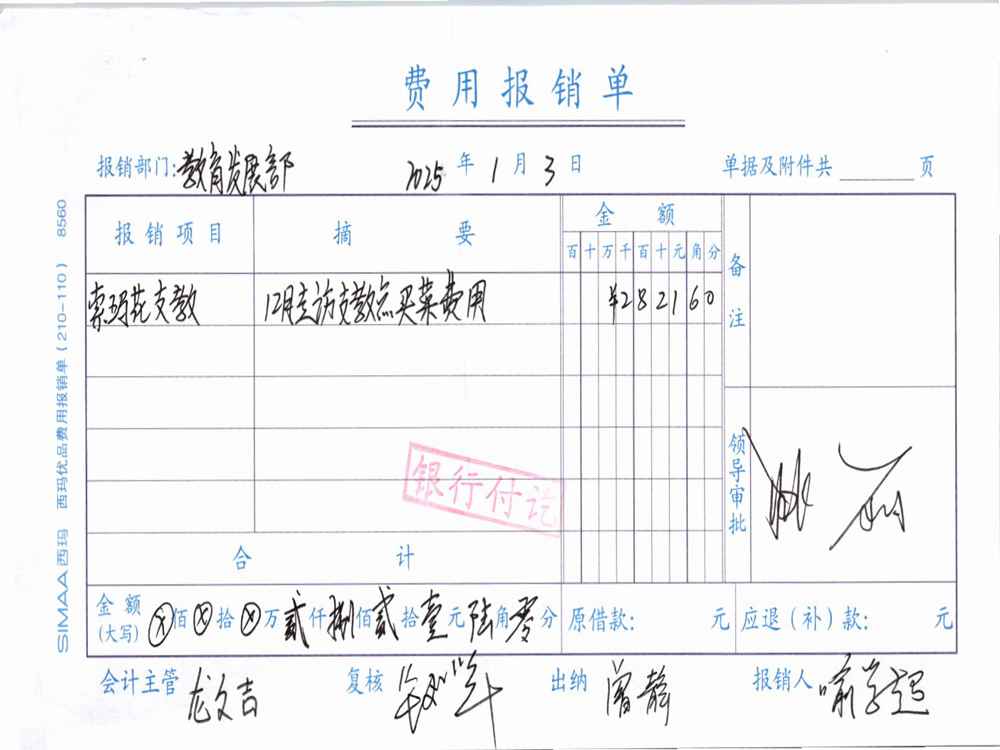 费用报销单
报销部门:教育发展部 2025年1月3日 单据及附件共 页
报销项目 摘要 金额 备注
百十万千百十元角分
索玛花支教 12月走访支教点买菜费用 ¥282160
银行付讫
领导审批
合计
金额(大写) ⊗佰⊗拾⊗万贰仟捌佰贰拾壹元陆角零分 原借款: 元 应退(补)款: 元
会计主管 龙文吉 复核 出纳 曾静 报销人 喻学超
SIMAA西玛 西玛优品费用报销单(210-110) 8560